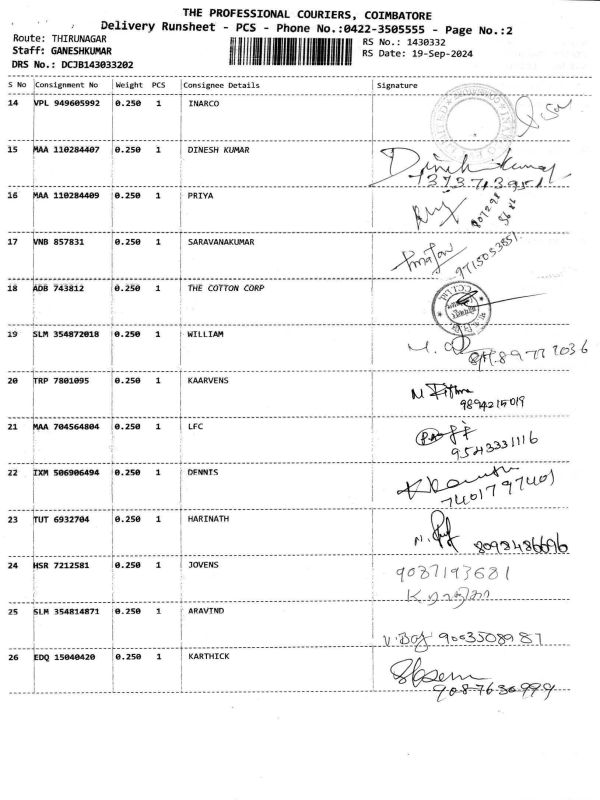 THE PROFESSIONAL COURIERS, COIMBATORE
Delivery Runsheet - PCS - Phone No.:0422-3505555 - Page No.:2
Route: THIRUNAGAR RS No.: 1430332
Staff: GANESHKUMAR RS Date: 19-Sep-2024
DRS No.: DCJB143033202
S No Consignment No Weight PCS Consignee Details Signature
14 VPL 949605992 0.250 1 INARCO
15 MAA 110284407 0.250 1 DINESH KUMAR Dinesh Kumar
7373713951
16 MAA 110284409 0.250 1 PRIYA
17 VNB 857831 0.250 1 SARAVANAKUMAR 9715053551
18 ADB 743812 0.250 1 THE COTTON CORP
19 SLM 354872018 0.250 1 WILLIAM
20 TRP 7801095 0.250 1 KAARVENS
9894215019
21 MAA 704564804 0.250 1 LFC
9543331116
22 IXM 506906494 0.250 1 DENNIS
7401797401
23 TUT 6932704 0.250 1 HARINATH
8098486696
24 HSR 7212581 0.250 1 JOVENS 9087193681
25 SLM 354814871 0.250 1 ARAVIND
9003508987
26 EDQ 15040420 0.250 1 KARTHICK
9087630999